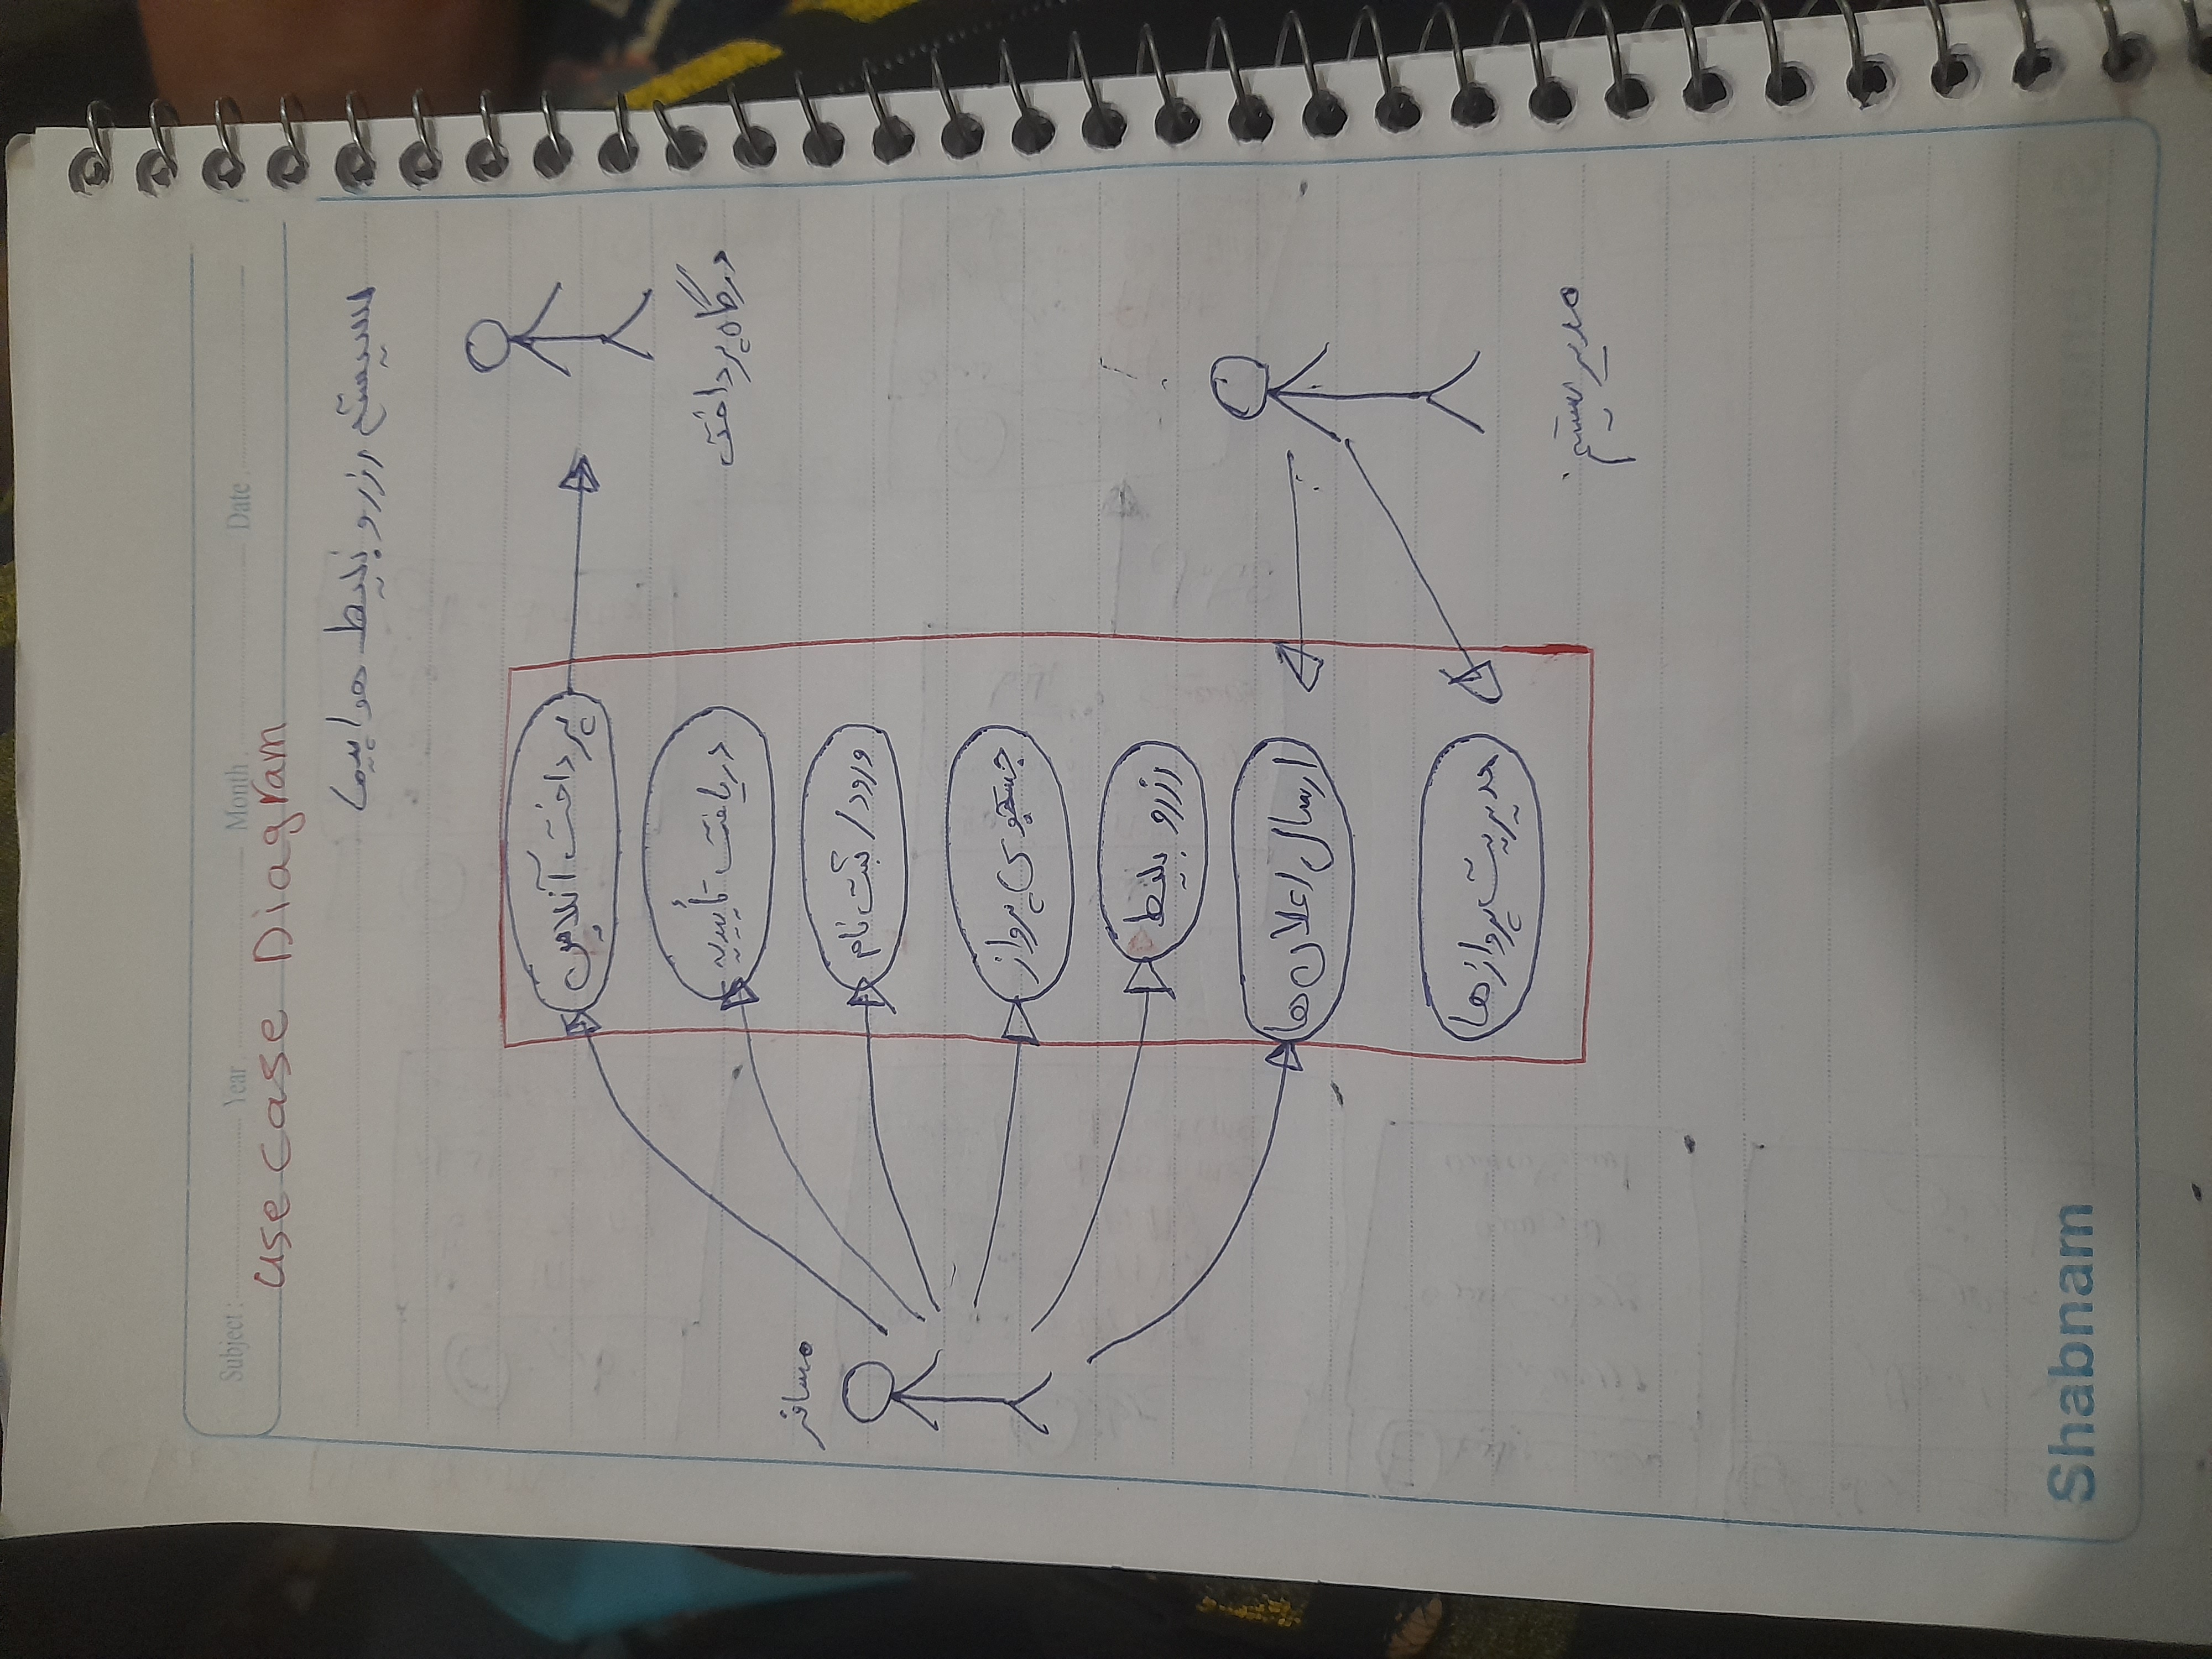 Subject : Year Month Date
Use case Diagram
سیستم رزرو بلیط هواپیما
پرداخت آنلاین
دریافت تأییدیه
درگاه پرداخت
مسافر
ورود / ثبت نام
جستجوی پرواز
رزرو بلیط
ارسال اعلان ها
مدیریت پروازها
مدیر سیستم
Shabnam